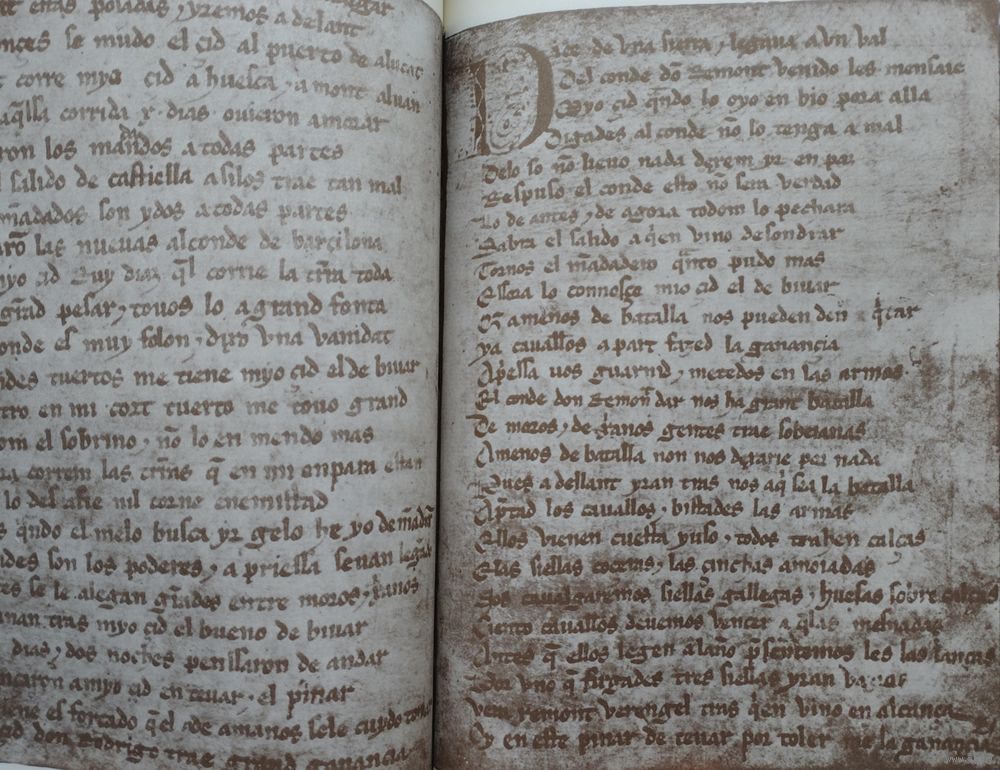 nt estas posadas, yremos a dellant
onçes se mudo el çid al puerto de alucat
t corre myo çid a huesca, a mont aluan
aq̃lla corrida x. dias ouieron amorar
ron los mandados a todas partes
l salido de castiella asilos trae tan mal
m̃adados son ydos a todas partes
arõ las nueuas alconde de barçilona
myo çid Ruy diaz q̃l corrie la trr̃a toda
grãd pesar, touos lo a grand fonta
onde es muy folon, dixo vna vanidat
ndes tuertos me tiene myo çid el de biuar
tro en mi cort tuerto me touo grand
om el sobrino, nõ lo en mendo mas
ra correm las trr̃as q̃ en mi enpara estan
lo del afie nil torno enemistad
s q̃ndo el melo busca yr gelo he yo de mãdar
ndes son los poderes, a priessa seuan legãdo
es se le alegan grãdes entre moros, xr̃anos
nan tras myo çid el bueno de biuar
dias, dos noches penssaron de andar
nçaron amyo çid en teuar, el pinar
ne es forçado q̃el de amanos sele cuydo tomar
çid don Rodrigo trae grand ganançia
Diçe de vna sierra, legaua a vn val
Del conde dõ Remont venido les mensaie
Myo çid q̃ndo lo oyo en bio pora alla
Digades al conde nõ lo tenga a mal
Delo so nõ lieuo nada dexem yr en paz
Respuso el conde esto nõ sera verdad
Lo de antes, de agora todom lo pechara
Sabra el salido a q̃en vino desondrar
Tornos el m̃adadero quãto pudo mas
Essora lo connosçe mio çid el de biuar
Q̃ a menos de batalla nos pueden den quitar
ya caualleros a part fazed la ganançia
Apriessa uos guarnid, metedos en las armas
El conde don Remont dar nos ha grant batalla
De moros, de xr̃anos gentes trae sobeianas
Amenos de batalla non nos dexarie por nada
Pues a dellant yran tras nos aq̃ sea la batalla
Apretad los cauallos, bistades las armas
Ellos vienen cuesta yuso, todos trahen calças
Elas siellas coçeras, las çinchas amoiadas
Nos caualgaremos siellas gallegas, huesas sobre calças
Çiento caualleros deuemos vençer a q̃las mesnadas
Antes q̃ ellos legen alaño p̃sentemos les las lanças
Por vno q̃ firgades tres siellas yran vazias
Vera remont verengel tras q̃en vino en alcança
Oy en este pinar de teuar por toler me la ganançia